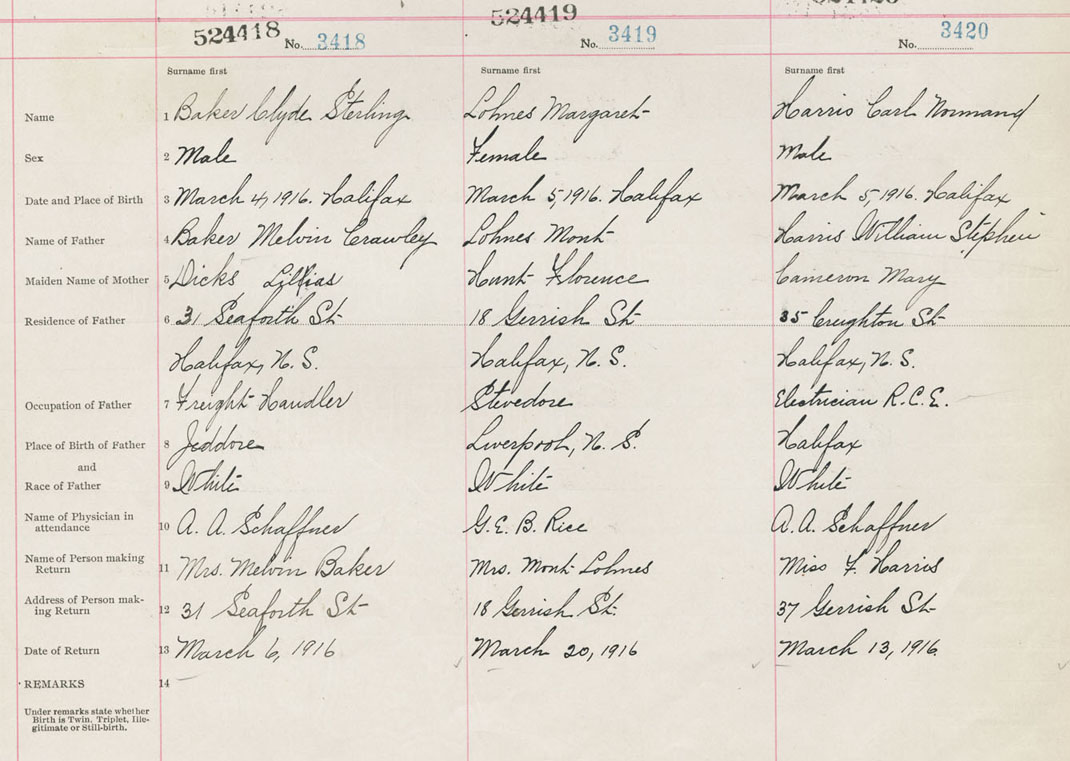 524418 No. 3418
524419 No. 3419
No. 3420
Surname first Surname first Surname first
Name 1 Baker Clyde Sterling Lohnes Margaret Harris Carl Normand
Sex 2 Male Female Male
Date and Place of Birth 3 March 4, 1916. Halifax March 5, 1916. Halifax March 5, 1916. Halifax
Name of Father 4 Baker Melvin Crawley Lohnes Mont Harris William Stephen
Maiden Name of Mother 5 Dicks Lillias Hunt Florence Cameron Mary
Residence of Father 6 31 Seaforth St 18 Gerrish St 35 Creighton St
Halifax, N. S. Halifax, N. S. Halifax, N. S.
Occupation of Father 7 Freight Handler Stevedore Electrician R.C.E.
Place of Birth of Father 8 Jeddore Liverpool, N. S. Halifax
and
Race of Father 9 White White White
Name of Physician in
attendance 10 A. A. Schaffner G. E. B. Rice A. A. Schaffner
Name of Person making
Return 11 Mrs. Melvin Baker Mrs. Mont Lohnes Miss F. Harris
Address of Person mak-
ing Return 12 31 Seaforth St 18 Gerrish St. 37 Gerrish St
Date of Return 13 March 6, 1916 March 20, 1916 March 13, 1916.
REMARKS 14
Under remarks state whether
Birth is Twin, Triplet, Ille-
gitimate or Still-birth.